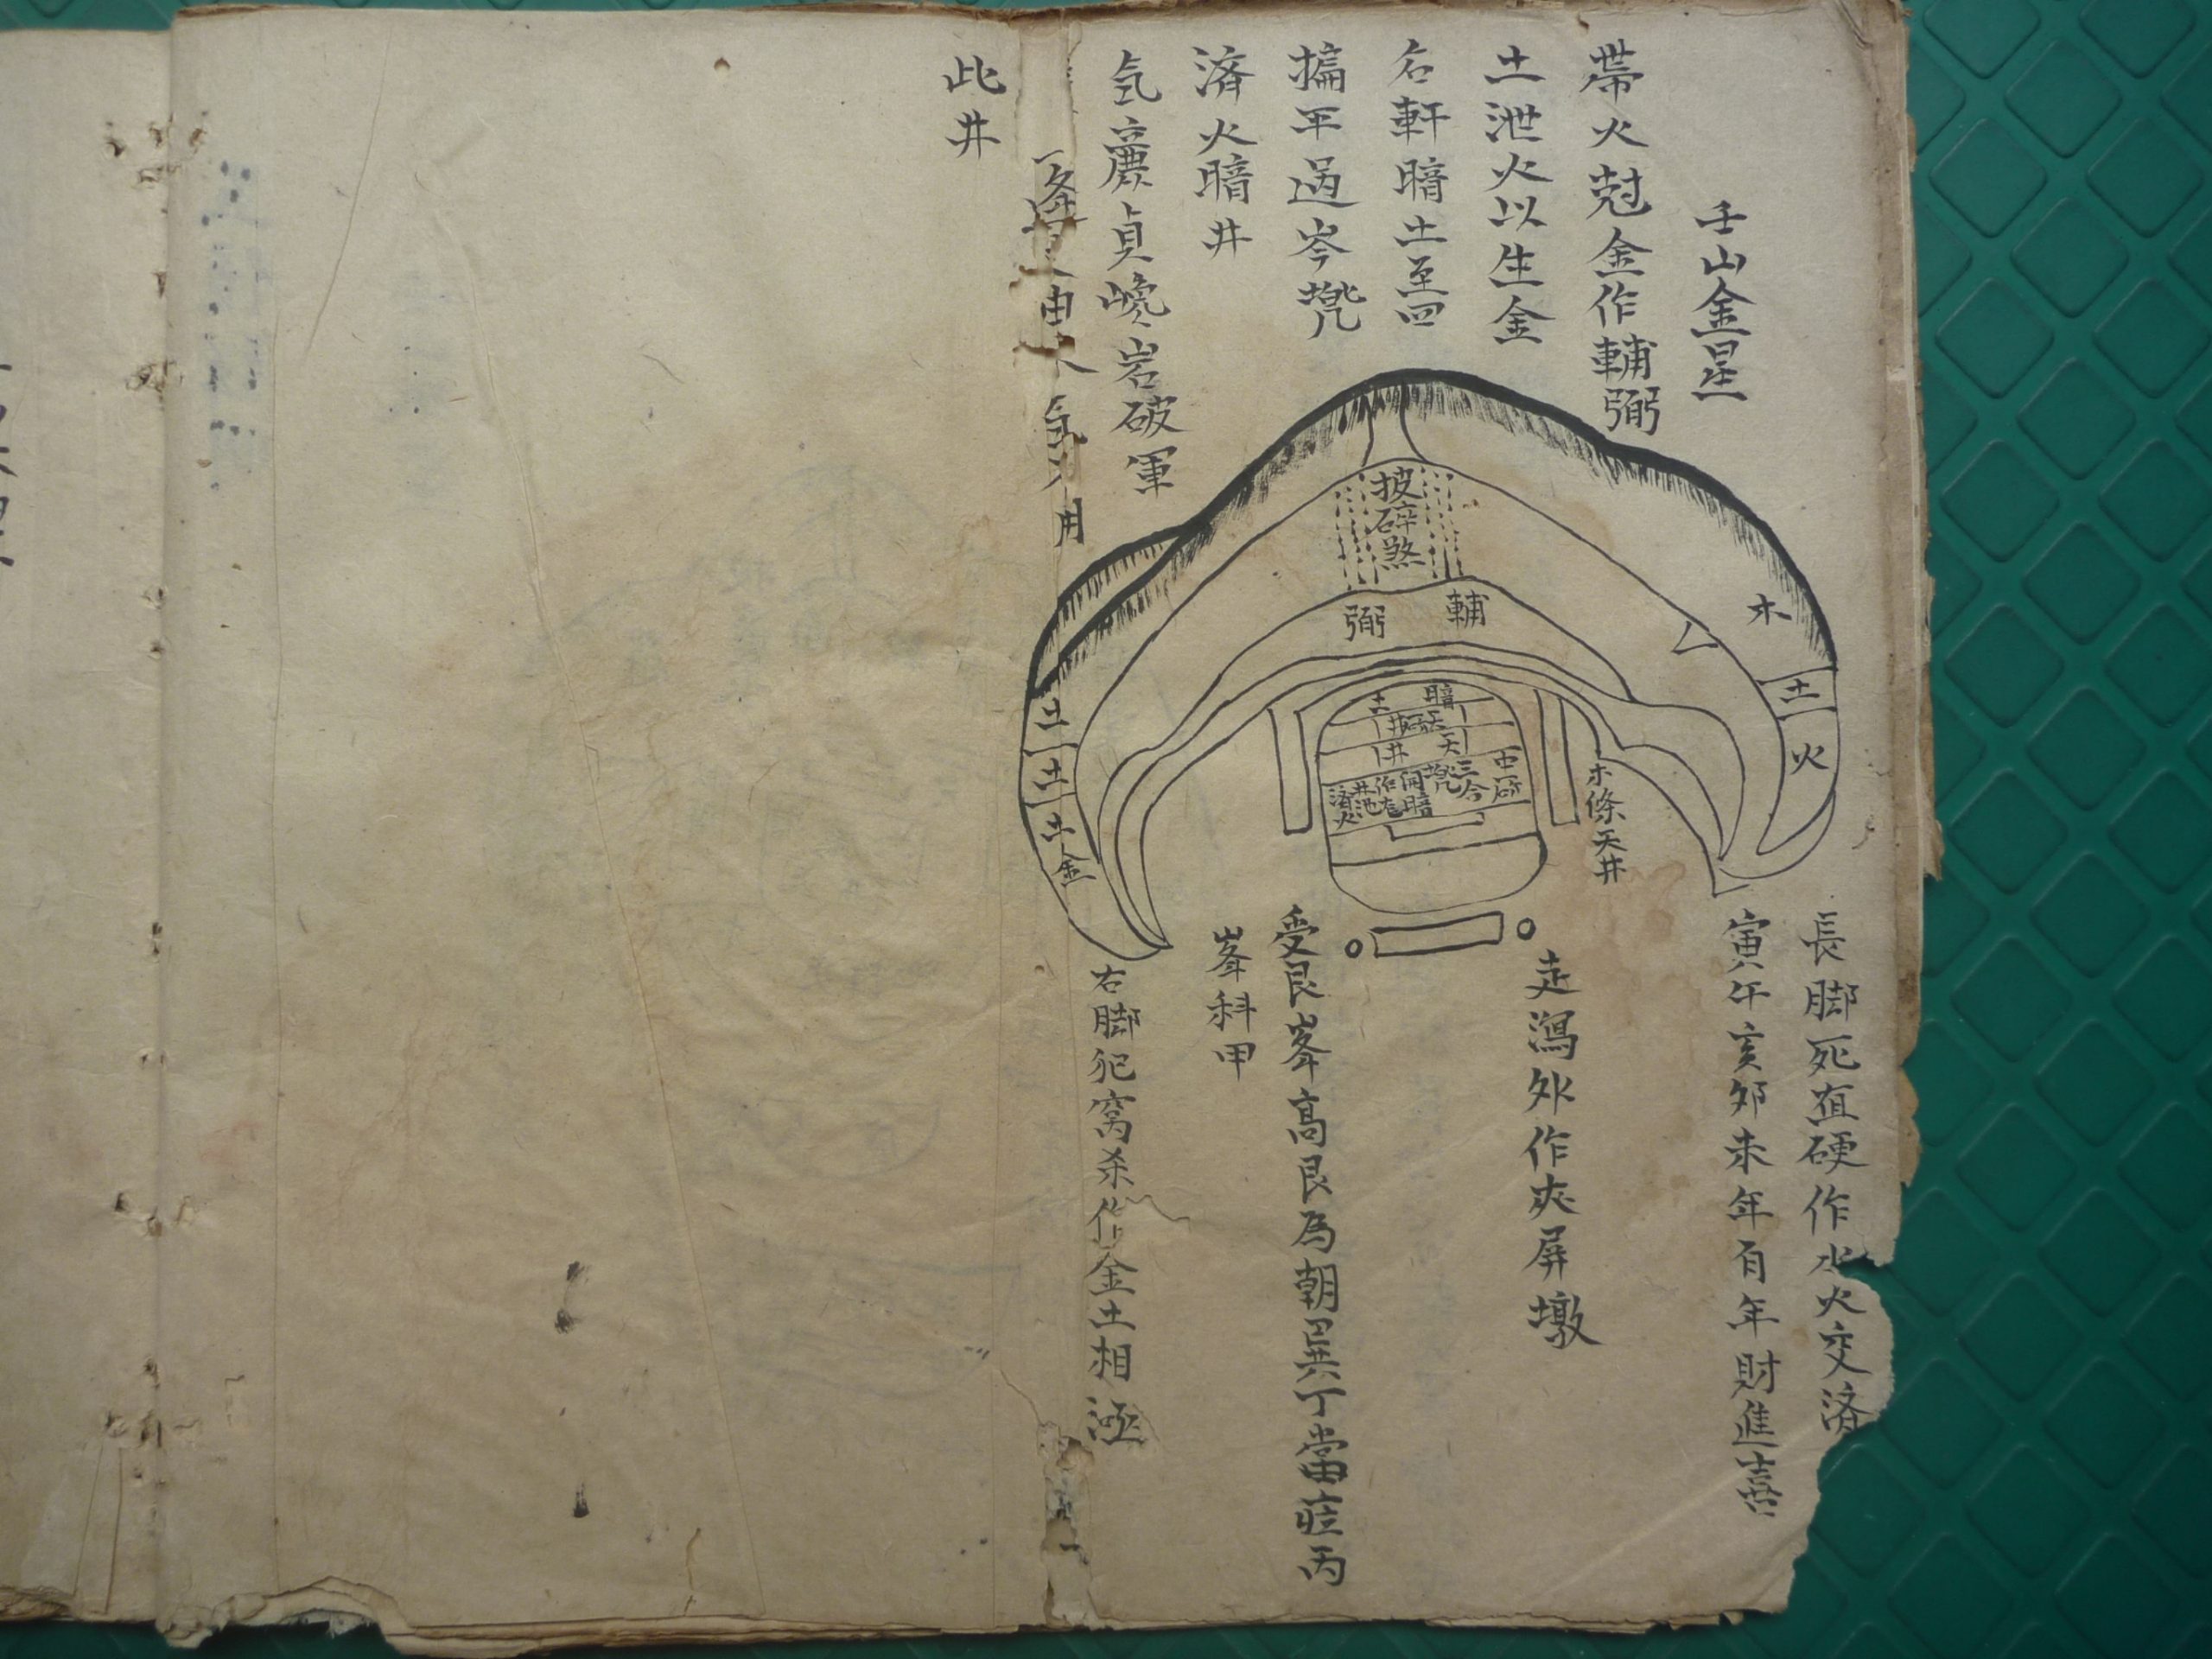 壬山金星
帶火尅金作輔弼
土泄火以生金
名軒暗土至四
搧平過岑塊
済火暗井
气廉貞巉岩破軍
由木气 用
此井
披碎煞
輔
弼
木
土
火
土
土
土
金
土暗
井
天
木條天井
長脚死直硬作水火交済
寅午亥卯未年百年財進喜
走瀉外作夾屏墩
受艮峯高艮為朝巽丁當庄丙
峯科甲
右脚犯窩杀作金土相